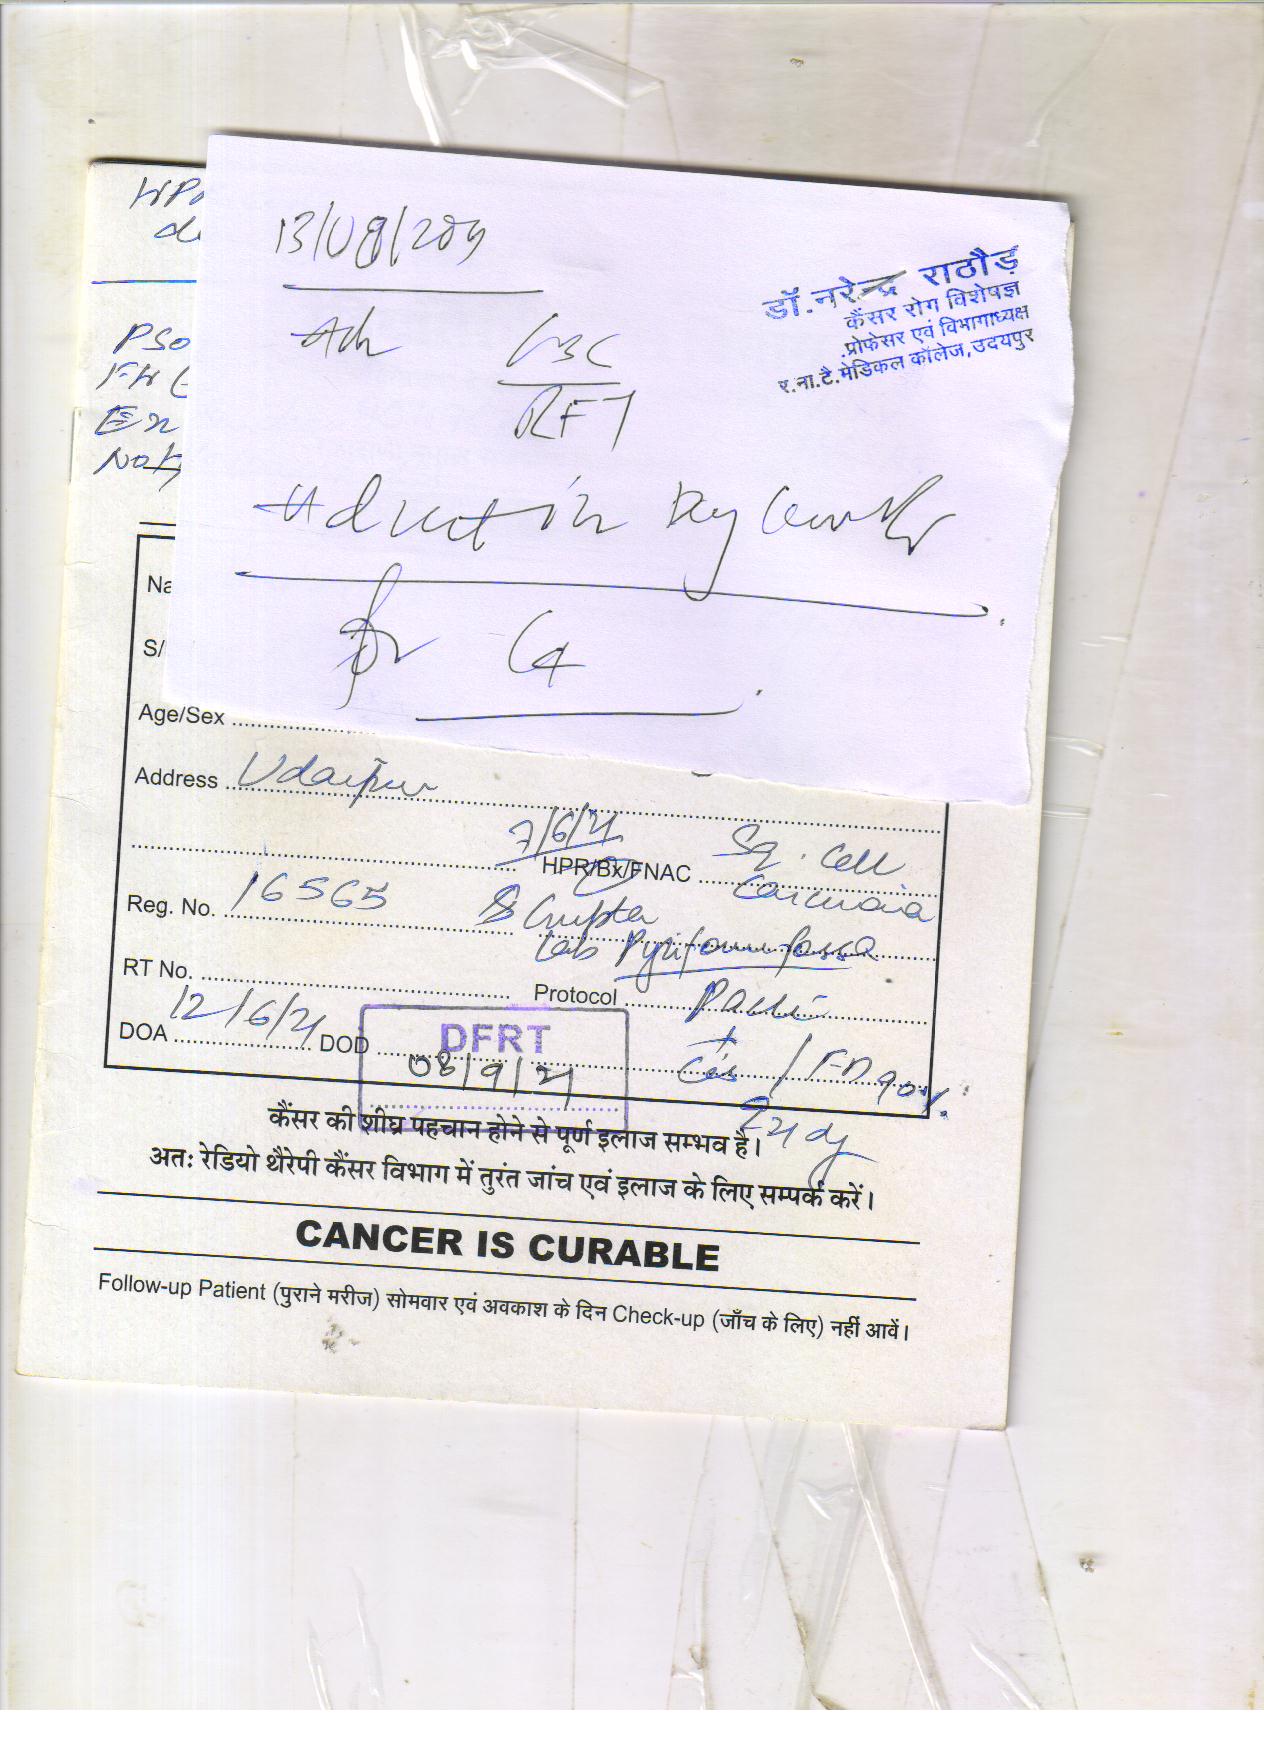 13/08/209
Adv CBC
RFT
Admit in Day Care
for C4
डॉ. नरेन्द्र राठौड़
कैंसर रोग विशेषज्ञ
प्रोफेसर एवं विभागाध्यक्ष
र.ना.टै. मेडिकल कॉलेज, उदयपुर
PSO
Ex
Na
S/
Age/Sex
Address Udaipur
7/6/21
HPR/Bx/FNAC Sq. Cell
Carcinoma
Reg. No. 16565
Gupta
Lab Pyriform fossa
RT No.
Protocol Pacli
+
Cis / FD 90%
DOA 12/6/21 DOD
DFRT
08/9/21
21 dy
कैंसर की शीघ्र पहचान होने से पूर्ण इलाज सम्भव है।
अतः रेडियो थैरेपी कैंसर विभाग में तुरंत जांच एवं इलाज के लिए सम्पर्क करें।
CANCER IS CURABLE
Follow-up Patient (पुराने मरीज) सोमवार एवं अवकाश के दिन Check-up (जाँच के लिए) नहीं आवें।